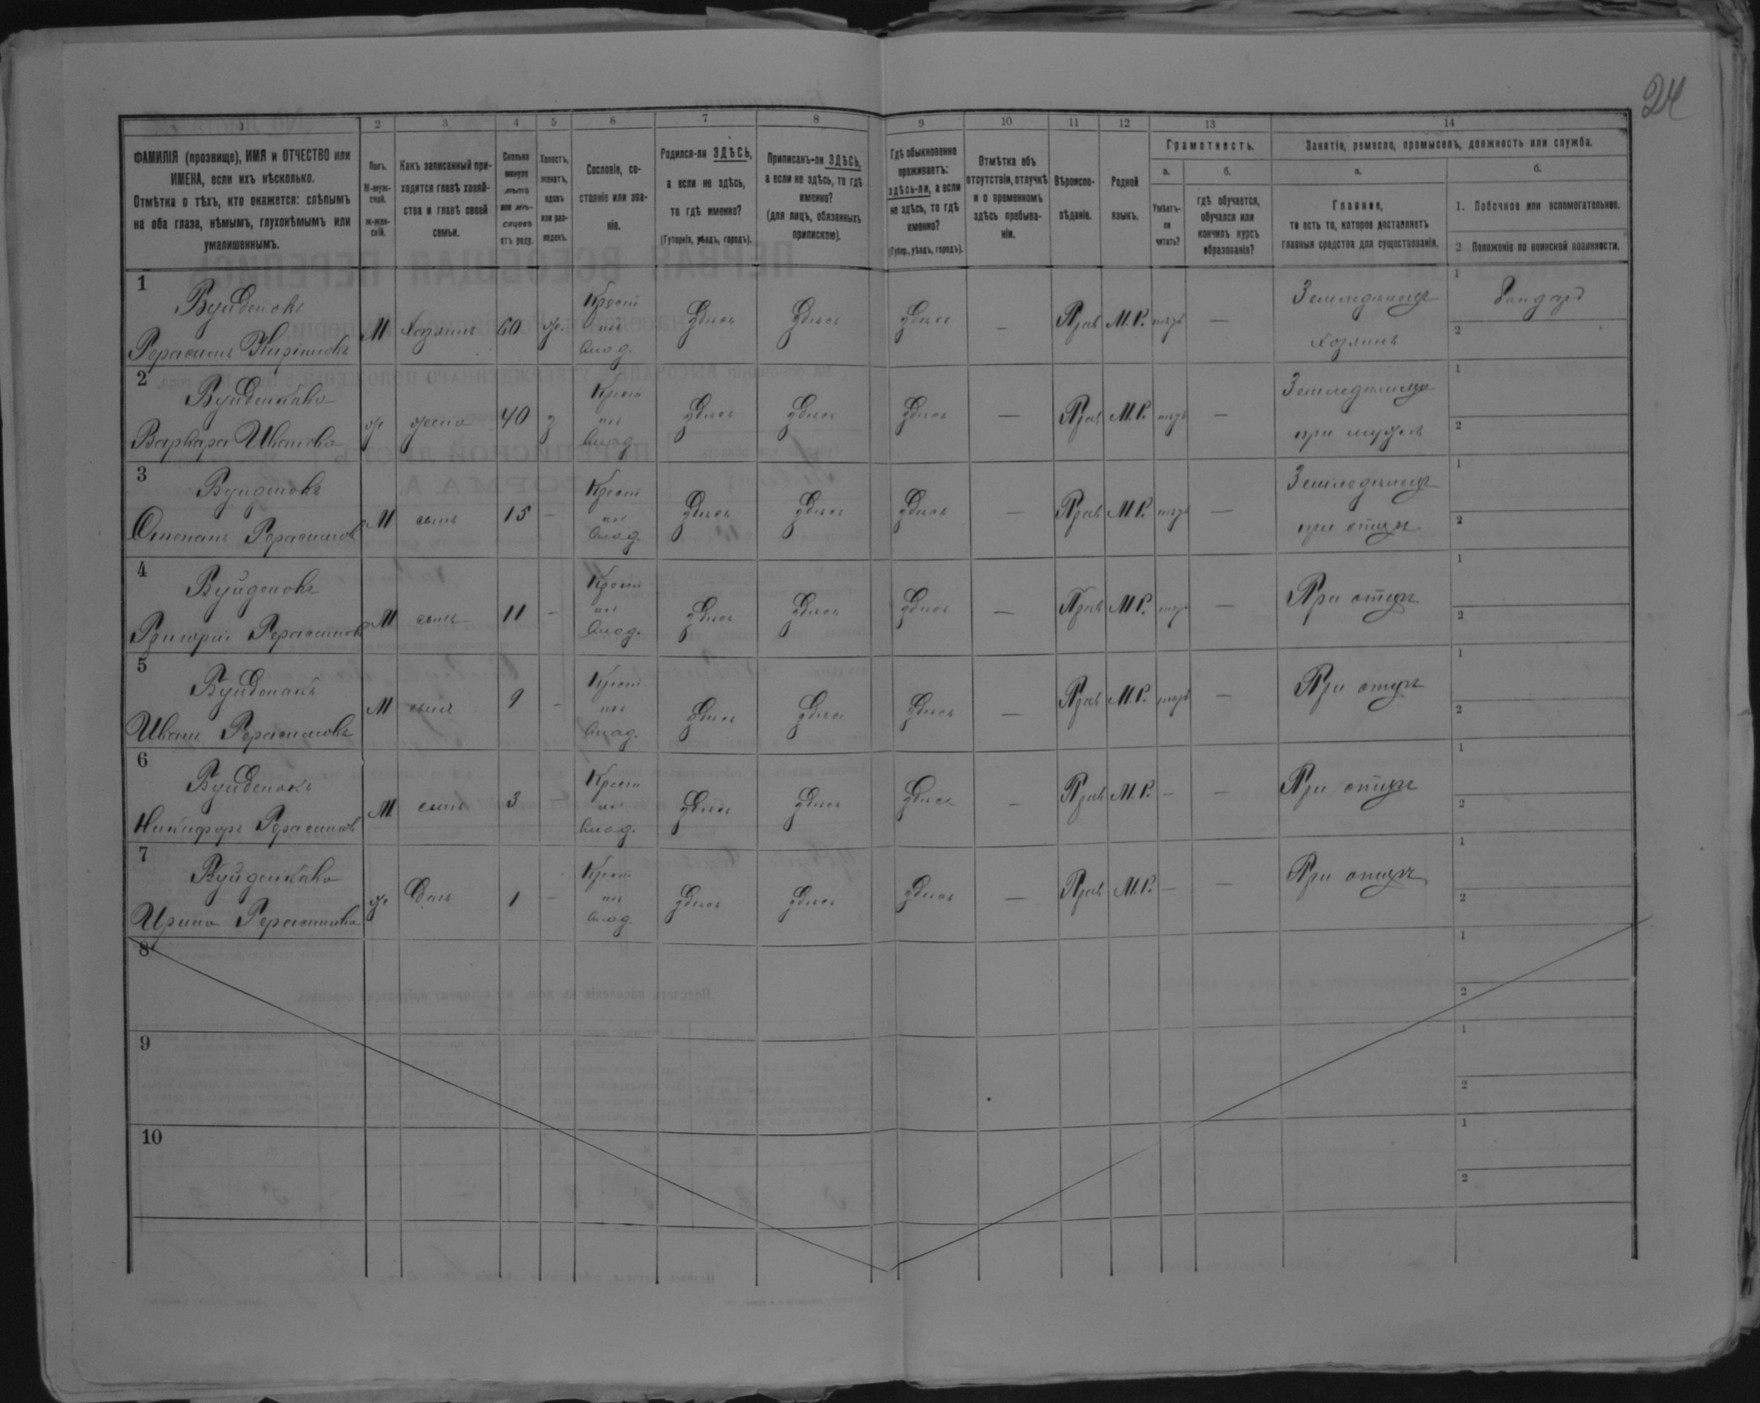 24
1 2 3 4 5 6 7 8 9 10 11 12 13 14
ФАМИЛІЯ (прозвище), ИМЯ и ОТЧЕСТВО или
ИМЕНА, если ихъ нѣсколько.
Отмѣтка о тѣхъ, кто окажется: слѣпымъ
на оба глаза, нѣмымъ, глухонѣмымъ или
умалишеннымъ.
Полъ.
М-муж-
ской.
ж-жен-
скій.
Какъ записанный при-
ходится главѣ хозяй-
ства и главѣ своей
семьи.
Сколько
минуло
лѣтъ
или мѣ-
сяцевъ
отъ роду.
Холостъ,
женатъ,
вдовъ
или раз-
веденъ.
Сословіе, со-
стояніе или зва-
ніе.
Родился-ли ЗДѢСЬ,
а если не здѣсь,
то гдѣ именно?
(Губернія, уѣздъ, городъ).
Приписанъ-ли ЗДѢСЬ,
а если не здѣсь, то гдѣ
именно?
(для лицъ, обязанныхъ
припискою).
Гдѣ обыкновенно
проживаетъ:
здѣсь-ли, а если
не здѣсь, то гдѣ
именно?
(Губер., уѣздъ, городъ).
Отмѣтка объ
отсутствіи, отлучкѣ
и о временномъ
здѣсь пребыва-
ніи.
Вѣроиспо-
вѣданіе.
Родной
языкъ.
Грамотность.
а.
Умѣетъ-
ли
читать?
б.
гдѣ обучается,
обучался или
кончилъ курсъ
образованія?
Занятіе, ремесло, промыселъ, должность или служба.
а.
Главное,
то есть то, которое доставляетъ
главныя средства для существованія.
б.
1. Побочное или вспомогательное.
2 Положеніе по воинской повинности.
1 Герасимъ М Хозяинъ 60 ж. Крест Влад. Здѣсь Здѣсь Здѣсь — Прав М.Р. — Земледѣлецъ хозяинъ 1 2
2 Варвара Иванова ж жена 40 з Крест Влад. Здѣсь Здѣсь Здѣсь — Прав М.Р. — при мужѣ 1 2
3 Степанъ Герасимовъ М сынъ 15 — Крест Влад. Здѣсь Здѣсь Здѣсь — Прав М.Р. — Земледѣлецъ при отцѣ 1 2
4 Григорій Герасимовъ М сынъ 11 — Крест Влад. Здѣсь Здѣсь Здѣсь — Прав М.Р. — При отцѣ 1 2
5 Иванъ Герасимовъ М сынъ 9 — Крест Влад. Здѣсь Здѣсь Здѣсь — Прав М.Р. — При отцѣ 1 2
6 Никифоръ Герасимовъ М сынъ 3 Крест Влад. Здѣсь Здѣсь Здѣсь — Прав М.Р. — — При отцѣ 1 2
7 Ирина Герасимова ж Дочь 1 — Крест Влад. Здѣсь Здѣсь Здѣсь — Прав М.Р. — — При отцѣ 1 2
8 1 2
9 1 2
10 1 2